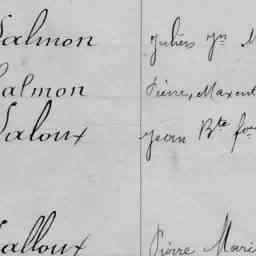 Salmon Julien Jn M
Salmon Pierre, Maxent
Saloux Jean Bte
Salloux Pierre Mari